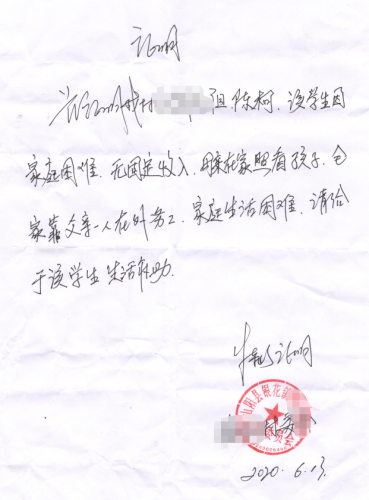 证明
兹证明我村 组陈柯.该学生因
家庭困难.无固定收入.母亲在家照看孩子.全
家靠父亲一人在外务工.家庭生活困难.请给
于该学生生活补助.
特此证明
山阳县银花
2020.6.13